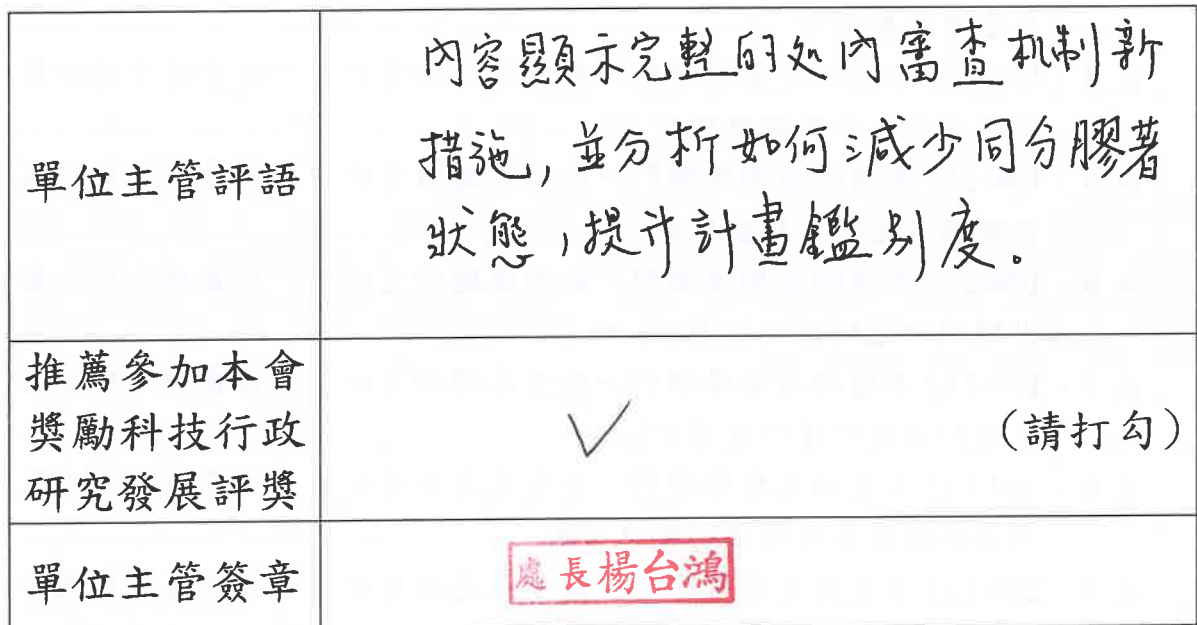 單位主管評語
內容顯示完整的处內審查机制新
措施,並分析如何減少同分膠著
狀態,提升計畫鑑別度。
推薦參加本會
獎勵科技行政
研究發展評獎
✓
(請打勾)
單位主管簽章
處長楊台鴻